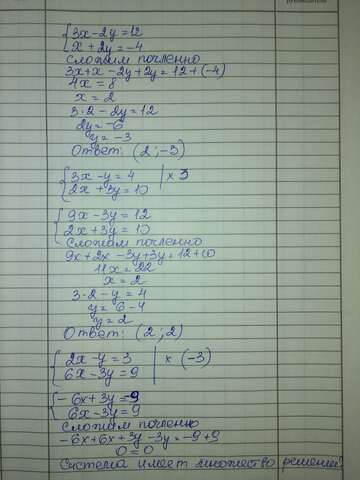 {3x-2y=12
{x+2y=-4
Сложим почленно
3x+x-2y+2y=12+(-4)
4x=8
x=2
3·2-2y=12
2y=-6
y=-3
Ответ: (2;-3)
{3x-y=4 | x 3
{2x+3y=10
{9x-3y=12
{2x+3y=10
Сложим почленно
9x+2x-3y+3y=12+10
11x=22
x=2
3·2-y=4
y=6-4
y=2
Ответ: (2;2)
{2x-y=3 | x (-3)
{6x-3y=9
{-6x+3y=-9
{6x-3y=9
Сложим почленно
-6x+6x+3y-3y=-9+9
0=0
Система имеет множество решений